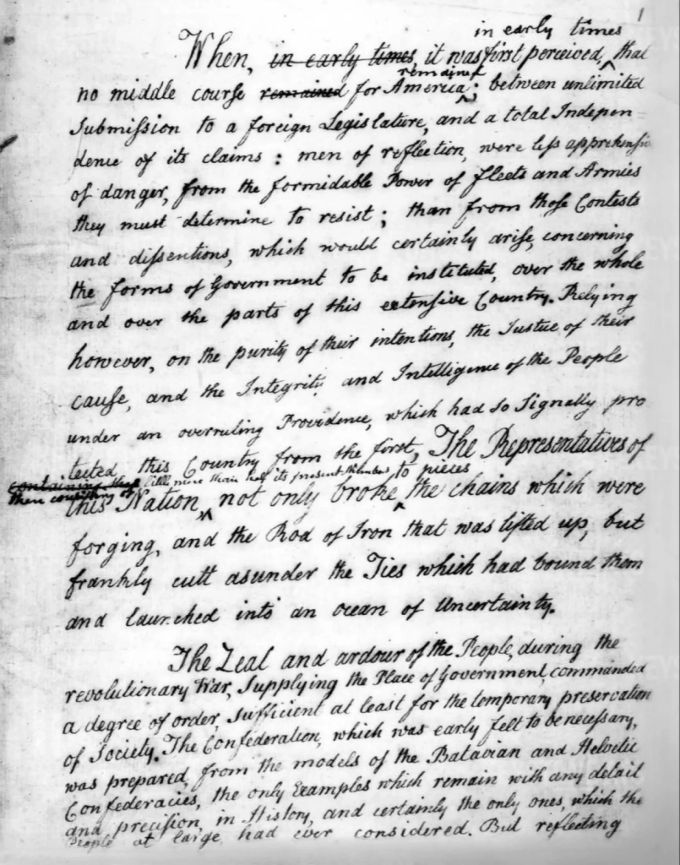 1
in early times
When, in early times, it was first perceived, that
remained
no middle course remained for America; between unlimited
Submission to a foreign Legislature, and a total Indepen-
dence of its claims: men of reflection, were less apprehensive
of danger, from the formidable Power of fleets and Armies
they must determine to resist; than from those Contests
and dissentions, which would certainly arise, concerning
the forms of Government to be instituted, over the whole
and over the parts of this extensive Country. Relying
however, on the purity of their intentions, the Justice of their
cause, and the Integrity and Intelligence of the People
under an overruling Providence, which had so Signally pro
tected this Country from the first, The Representatives of
containing then little more than half its present Numbers to pieces
then consisting of
this Nation, not only broke the chains which were
forging, and the Rod of Iron that was lifted up, but
frankly cutt asunder the Ties which had bound them
and launched into an ocean of Uncertainty.
The Zeal and ardour of the People, during the
revolutionary War, Supplying the Place of Government, commanded
a degree of order, sufficient at least for the temporary preservation
of Society. The Confederation, which was early felt to be necessary,
was prepared, from the models of the Batavian and Helvetic
Confederacies, the only Examples which remain with any detail
and precision, in History, and certainly the only ones, which the
People at large, had ever considered. But reflecting